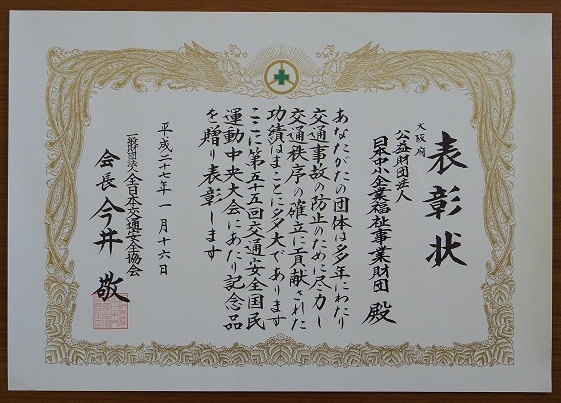 表彰状
大阪府
公益財団法人
日本中小企業福祉事業財団 殿
あなたがたの団体は多年にわたり
交通事故の防止のために尽力し
交通秩序の確立に貢献された
功績はまことに多大であります
ここに第五十五回交通安全国民
運動中央大会にあたり記念品
を贈り表彰します
平成二十七年一月十六日
一般財団法人全日本交通安全協会
会長 今井 敬